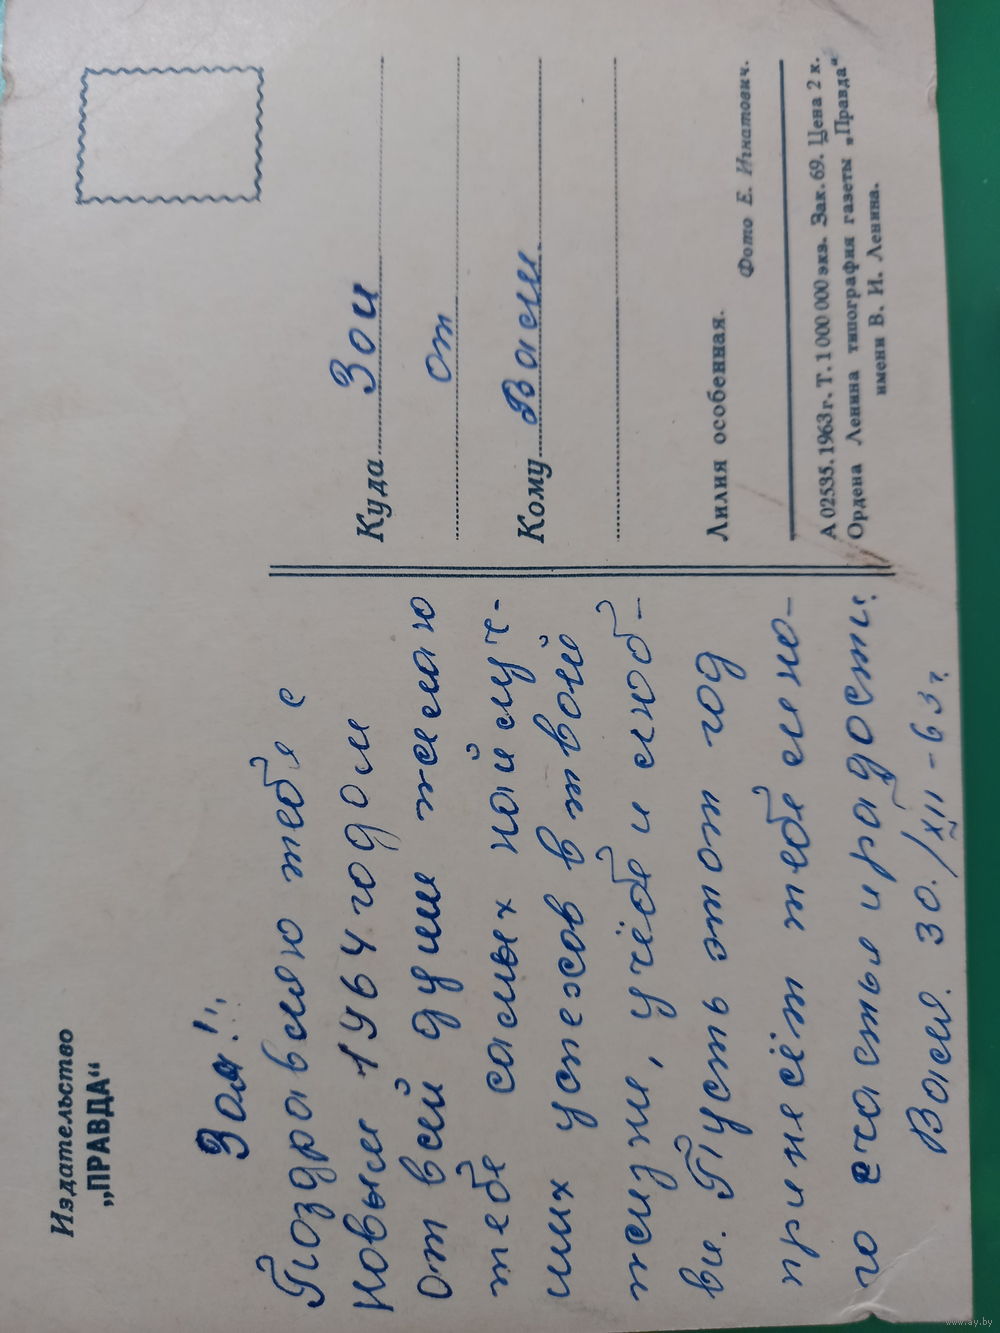 Издательство
„ПРАВДА“
Зоя!!
Поздравляю тебя с
Новым 1964 годом
от всей души желаю
тебе самых наилуч-
ших успехов в твоей
жизни, учёбе и люб-
ви. Пусть этот год
принесёт тебе мно-
го счастья и радости.
Вася. 30./XII-63г.
Куда Зои
от
Кому Васи.
Лилия особенная.
Фото Е. Игнатович.
А 02535. 1963 г. Т. 1 000 000 экз. Зак. 69. Цена 2 к.
Ордена Ленина типография газеты „Правда“
имени В. И. Ленина.
www.ay.by